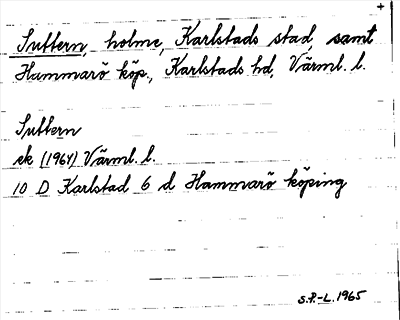 Suttern, holme, Karlstads stad, samt
Hammarö köp., Karlstads hd, Värml. l.
Suttern
ek (1964) Värml. l.
10 D Karlstad 6 d Hammarö köping
S.P.-L. 1965